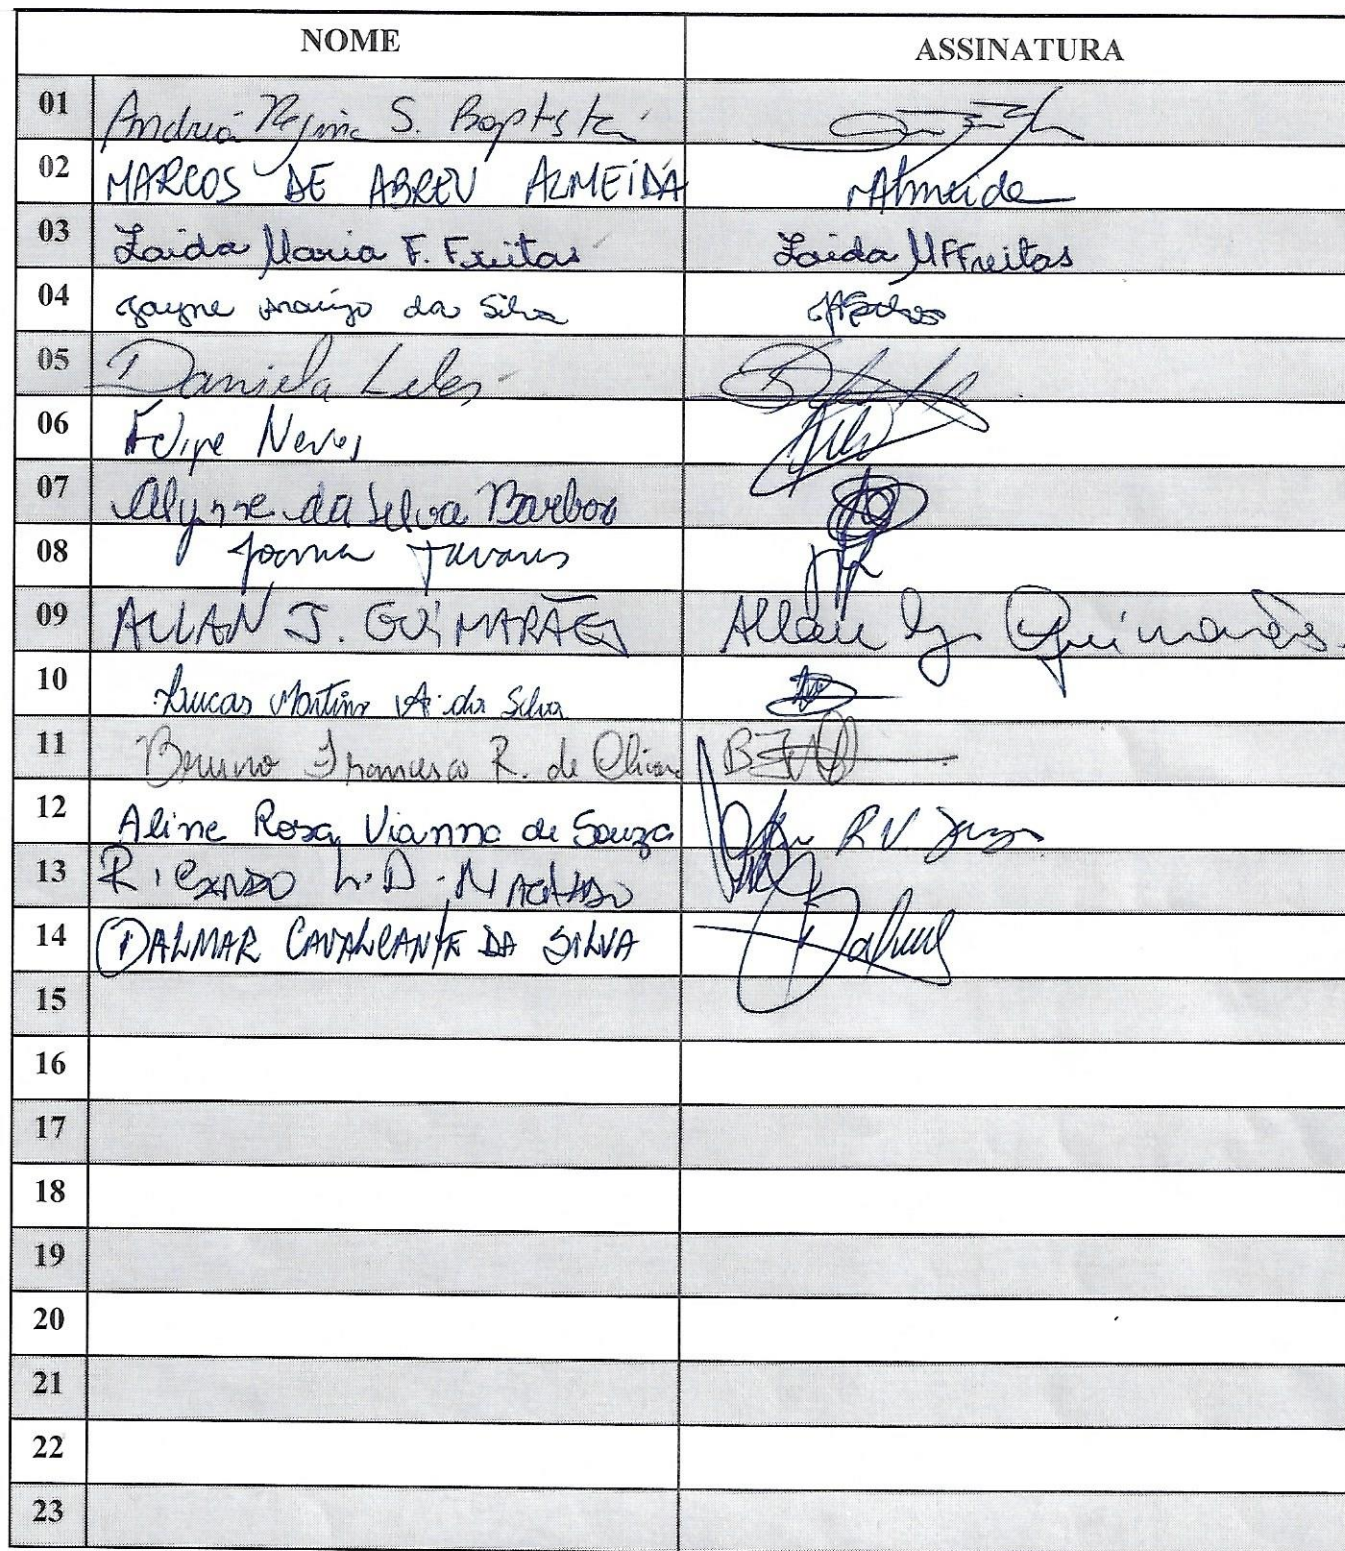 NOME ASSINATURA
01 Andréa Regina S. Baptista
02 MARCOS DE ABREU ALMEIDA MAlmeida
03 Zaida Maria F. Freitas Zaida MFFreitas
04 Jayne Araújo da Silva
05 Daniela Leles
06 Felipe Neves
07 Alynne da Silva Barbosa
08 Joanna Tavares
09 ALLAN J. GUIMARÃES Allan J. Guimarães
10 Lucas Martins A. da Silva
11 Bruno Francesco R. de Oliveira
12 Aline Rosa Vianna de Souza
13 RICARDO L.D. MACHADO
14 DALMAR CAVALCANTE DA SILVA
15
16
17
18
19
20
21
22
23